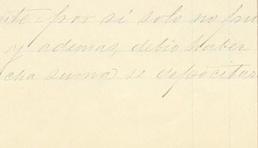 nte- por sí solo no pu
y ademas, debio haber
cha suma se depocitar